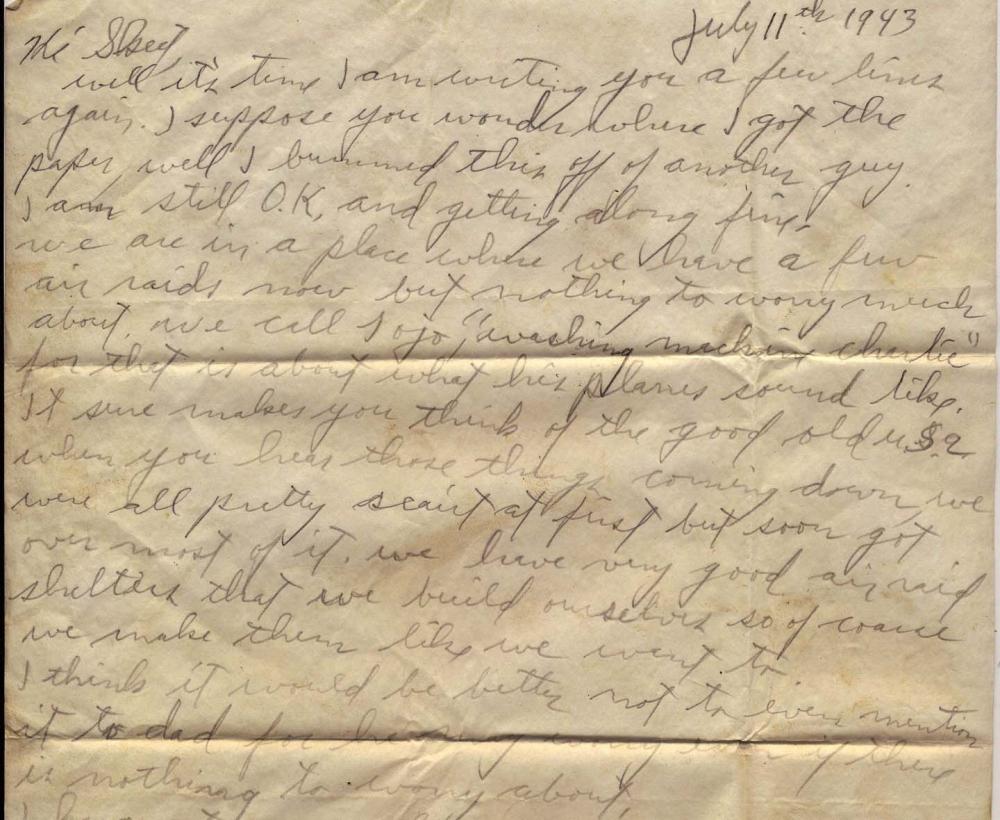 July 11th 1943
Hi
well it's time I am writing you a few lines
again. I suppose you wonder where I got the
paper, well I bummed this off of another guy.
I am still O.K, and getting along fine.
we are in a place where we have a few
air raids now but nothing to worry much
about. we call Tojo, "washing machine charlie"
for that is about what his planes sound like.
It sure makes you think of the good old u.S.a
when you hear those things coming down, we
were all pretty scairt at first but soon got
over most of it. we have very good air raid
shelters that we build ourselves so of coarse
we make them like we want to.
I think it would be better not to even mention
it to dad for he may worry even if there
is nothing to worry about.
I